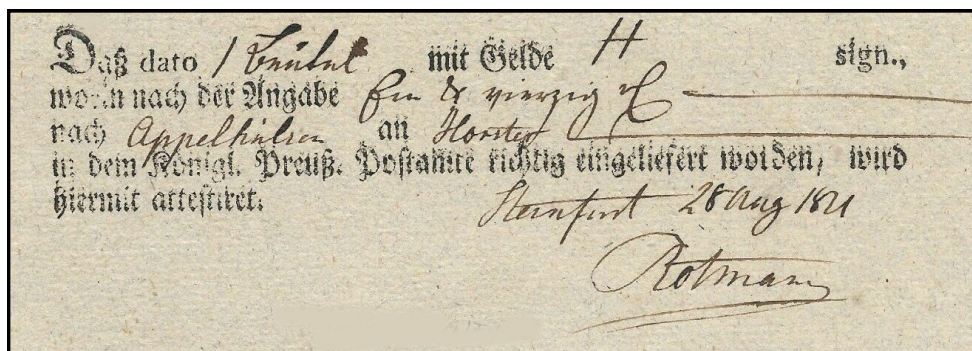 Daß dato 1 Beutel mit Gelde H sign.,
worin nach der Angabe Ein & vierzig
nach Appelhülsen an Horstey
in dem Königl. Preuß. Postamte richtig eingeliefert worden, wird
hiermit attestiret.
Steinfurt 28 Aug 1821
Rotmann